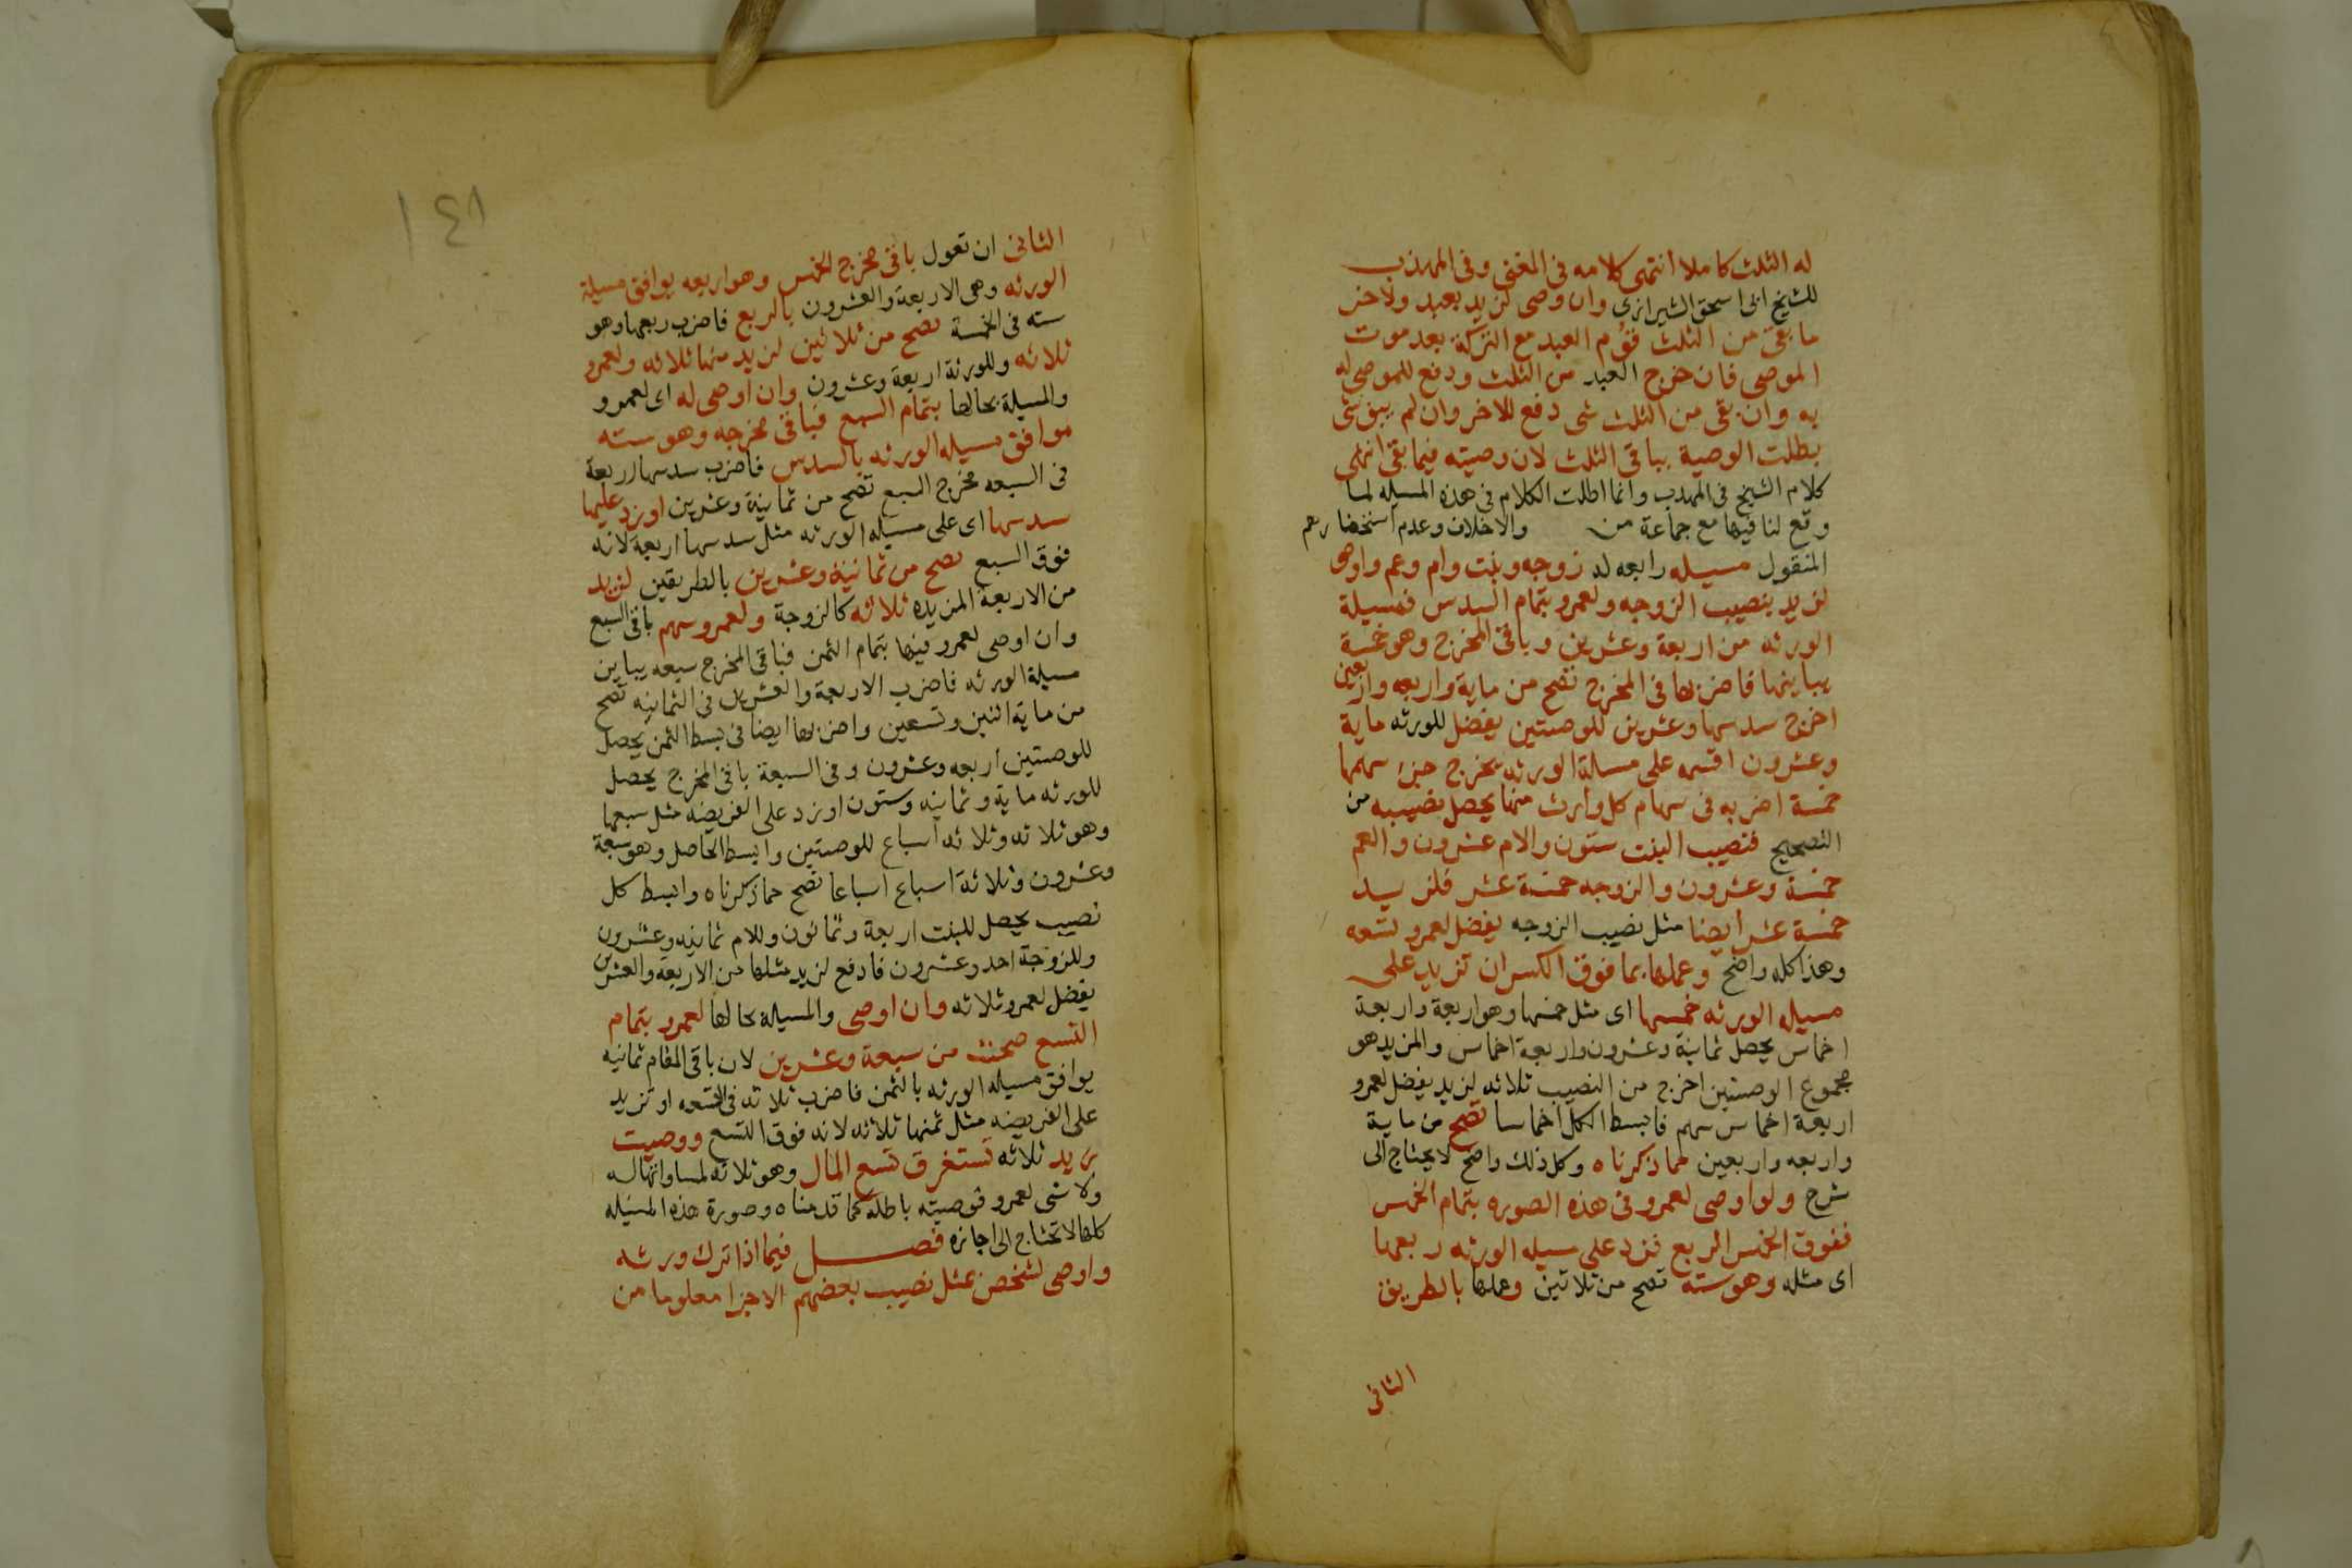 له الثلث كاملا انتهى كلامه فى المغنى وفى المهذب
للشيخ ابى اسحق الشيرازى وان وصى لزيد بعبد ولاخر
ما بقى من الثلث قوم العبد مع التركة بعد موت
الموصى فان خرج العبد من الثلث دفع للموصى له
به وان بقى من الثلث شى دفع للاخر وان لم يبق شى
بطلت الوصية بباقى الثلث لان وصيته فيما بقى انتهى
كلام الشيخ فى المهذب وانما اطلت الكلام فى هذه المسيله لما
وقع لنا فيها مع جماعة من والاخلاف وعدم استحضارهم
المنقول مسيله رابعه له زوجه وبنت وام وعم واوصى
لزيد بنصيب الزوجه ولعمرو بتمام السدس فمسيلة
الورثه من اربعة وعشرين وباقى المخرج وهو خمسة
يباينها فاضربها فى المخرج تصح من ماية واربعه واربعين
اخرج سدسها وعشرين للوصيتين يفضل للورثه ماية
وعشرون اقسمه على مسالة الورثه يخرج جزء سهمها
خمسة اضربه فى سهام كل وارث منها يحصل نصيبه من
التصحيح فنصيب البنت ستون والام عشرون والعم
خمسة وعشرون والزوجه خمسة عشر فلزيد
خمسة عشر ايضا مثل نصيب الزوجه يفضل لعمرو تسعه
وهذا كله واضح وعملها بما فوق الكسر ان تزيد على
مسيله الورثه خمسها اى مثل خمسها وهو اربعة واربعة
اخماس يحصل ثمانية وعشرون واربعة اخماس والمزيد هو
مجموع الوصيتين اخرج من النصيب ثلاثه لزيد يفضل لعمرو
اربعة اخماس سهم فابسط الكل اخماسا تصح من ماية
واربعه واربعين كما ذكرناه وكل ذلك واضح لا يحتاج الى
شرح ولو اوصى لعمرو فى هذه الصوره بتمام الخمس
ففوق الخمس الربع فزد على مسيله الورثه ربعها
اى مثله وهو سته تصح من ثلاثين وعملها بالطريق
الثانى
١٤٨
الثانى ان تقول باقى مخرج الخمس وهو اربعه يوافق مسيلة
الورثه وهى الاربعة والعشرون بالربع فاضرب ربعها وهو
سته فى الخمسة تصح من ثلاثين لزيد منها ثلاثه ولعمرو
ثلاثه وللورثة اربعة وعشرون وان اوصى له اى لعمرو
والمسيلة بحالها بتمام السبع فباقى مخرجه وهو سته
موافق مسيله الورثه بالسدس فاضرب سدسها اربعة
فى السبعه مخرج السبع تصح من ثمانية وعشرين او زد عليها
سدسها اى على مسيله الورثه مثل سدسها اربعة لانه
فوق السبع تصح من ثمانية وعشرين بالطريقين لزيد
من الاربعة المزيده ثلاثه كالزوجة ولعمرو سهم باقى السبع
وان اوصى لعمرو فيها بتمام الثمن فباقى المخرج سبعه يباين
مسيلة الورثه فاضرب الاربعة والعشرين فى الثمانيه تصح
من ماية اثنين وتسعين واضربها ايضا فى بسط الثمن يحصل
للوصيتين اربعه وعشرون وفى السبعة باقى المخرج يحصل
للورثه ماية وثمانيه وستون او زد على الفريضه مثل سبعها
وهو ثلاثه وثلاثه اسباع للوصيتين وابسط الحاصل وهو سبعة
وعشرون وثلاثة اسباع اسباعا تصح مما ذكرناه وابسط كل
نصيب يحصل للبنت اربعة وثمانون وللام ثمانيه وعشرون
وللزوجة احد وعشرون فادفع لزيد مثلها من الاربعه والعشرين
يفضل لعمرو ثلاثه وان اوصى والمسيله بحالها لعمرو بتمام
التسع صحت من سبعة وعشرين لان باقى المقام ثمانيه
يوافق مسيله الورثه بالثمن فاضرب ثلاثه فى التسعه او تزيد
على الفريضه مثل ثمنها ثلاثه لانه فوق التسع ووصيت
زيد ثلاثه تستغرق تسع المال وهو ثلاثه لمساواتها له
ولا شى لعمرو فوصيته باطله كما قدمناه وصورة هذه المسيله
كلها لا تحتاج الى اجازه فصل فيما اذا ترك ورثه
واوصى لشخص بمثل نصيب بعضهم الا جزا معلوما من